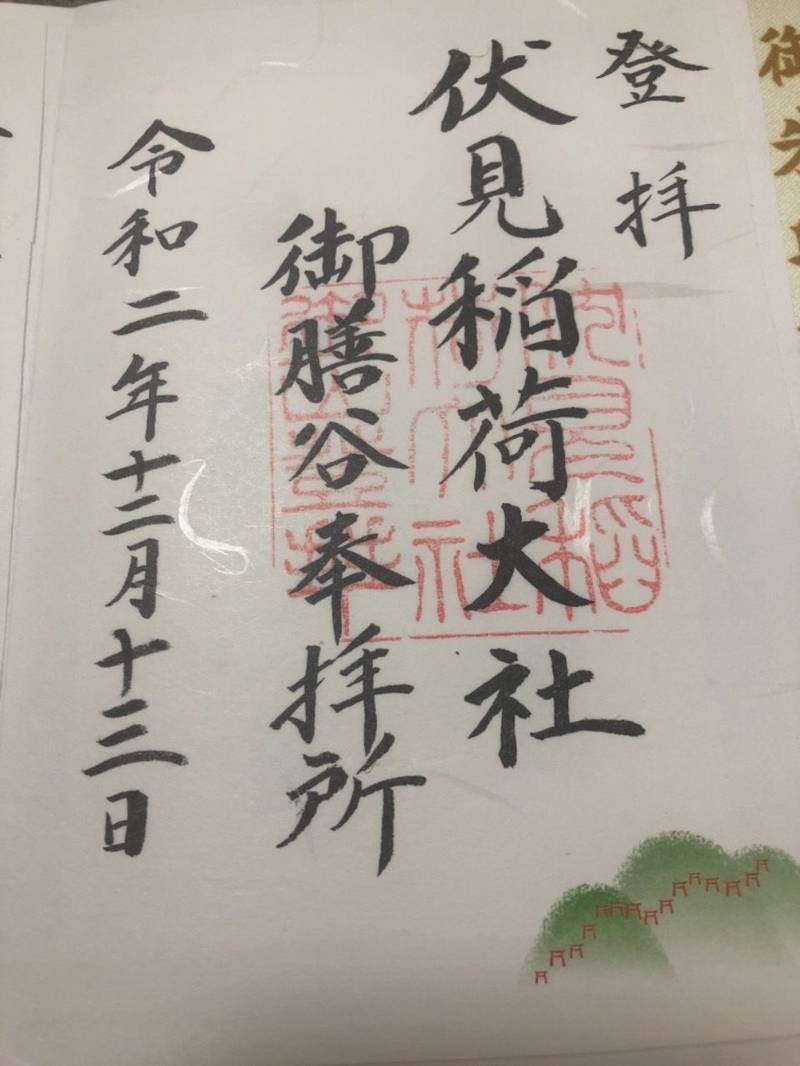 登拝
伏見稲荷大社
御膳谷奉拝所
令和二年十二月十三日